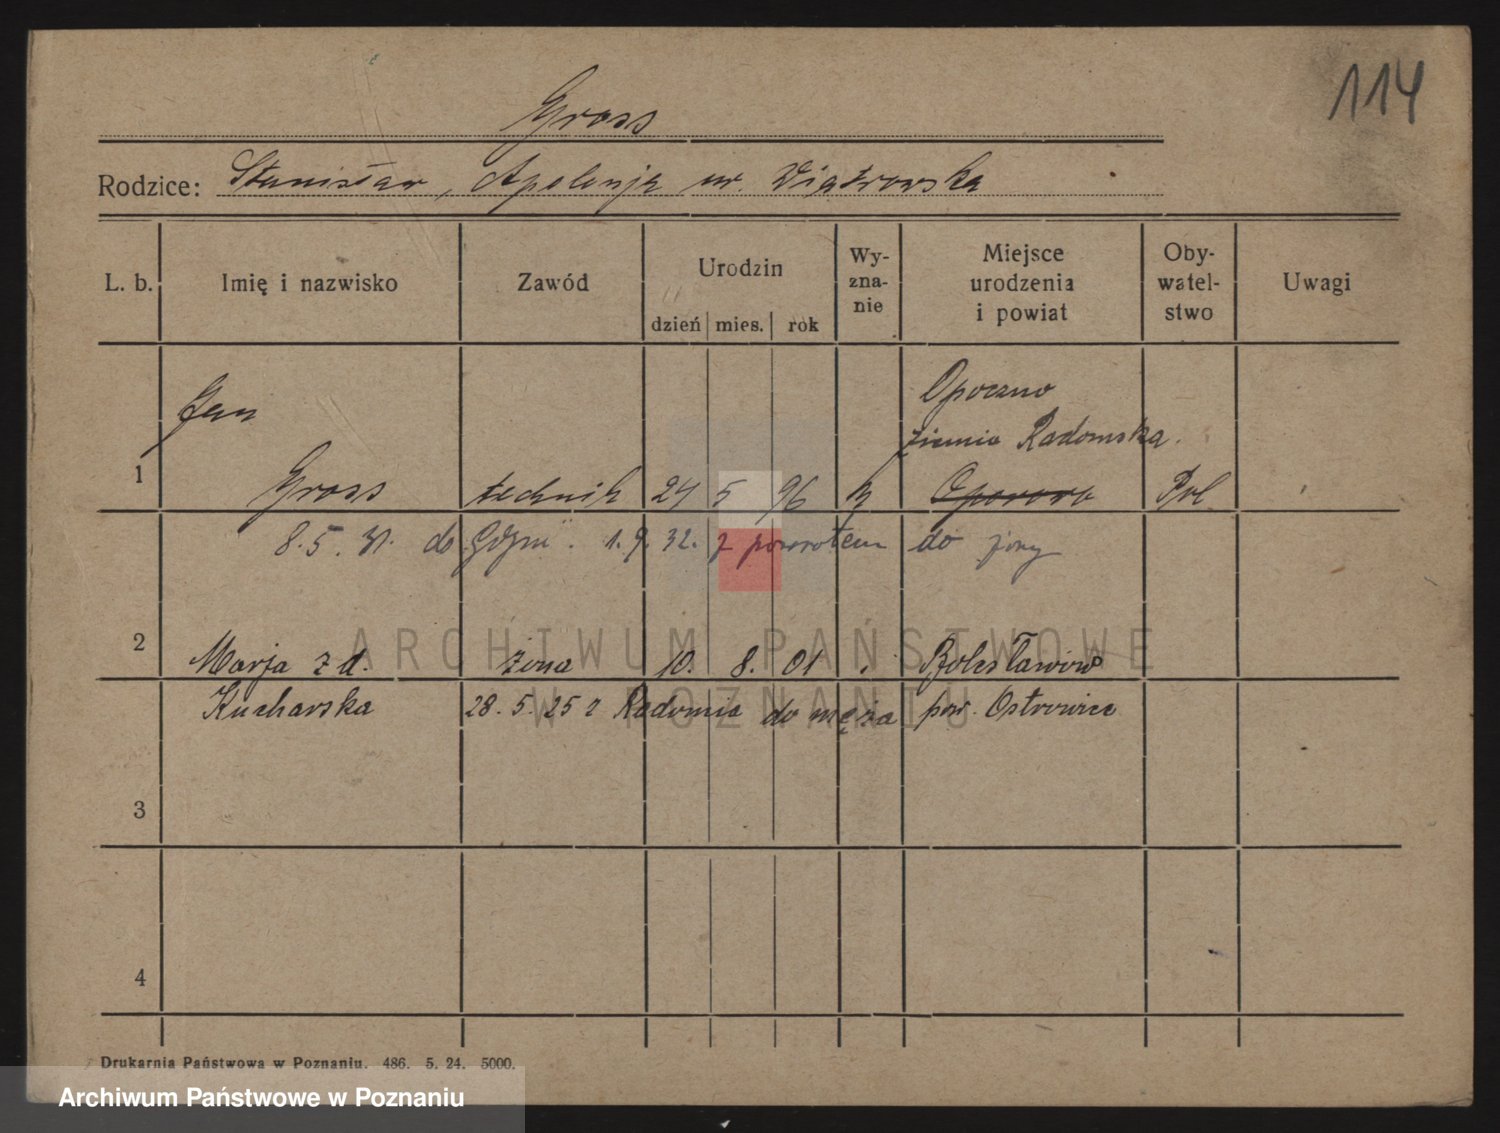 114
Gross
Rodzice: Stanisław, Apolonja ur. Wiatrowska
L. b. Imię i nazwisko Zawód Urodzin dzień mies. rok Wyznanie Miejsce urodzenia i powiat Obywatelstwo Uwagi
Jan Opoczno
ziemia Radomska.
1 Gross technik 24 5 96 Oporowo Pol
8.5.31. do Gdyni. 1.9.32. z powrotem do żony
2 Marja z d. żona 10. 8. 01 Bolesławów
Kucharska 28.5.25 z Radomia do męża pow. Ostrowiec
3
4
Drukarnia Państwowa w Poznaniu. 486. 5. 24. 5000.
ARCHIWUM PAŃSTWOWE
W POZNANIU
Archiwum Państwowe w Poznaniu